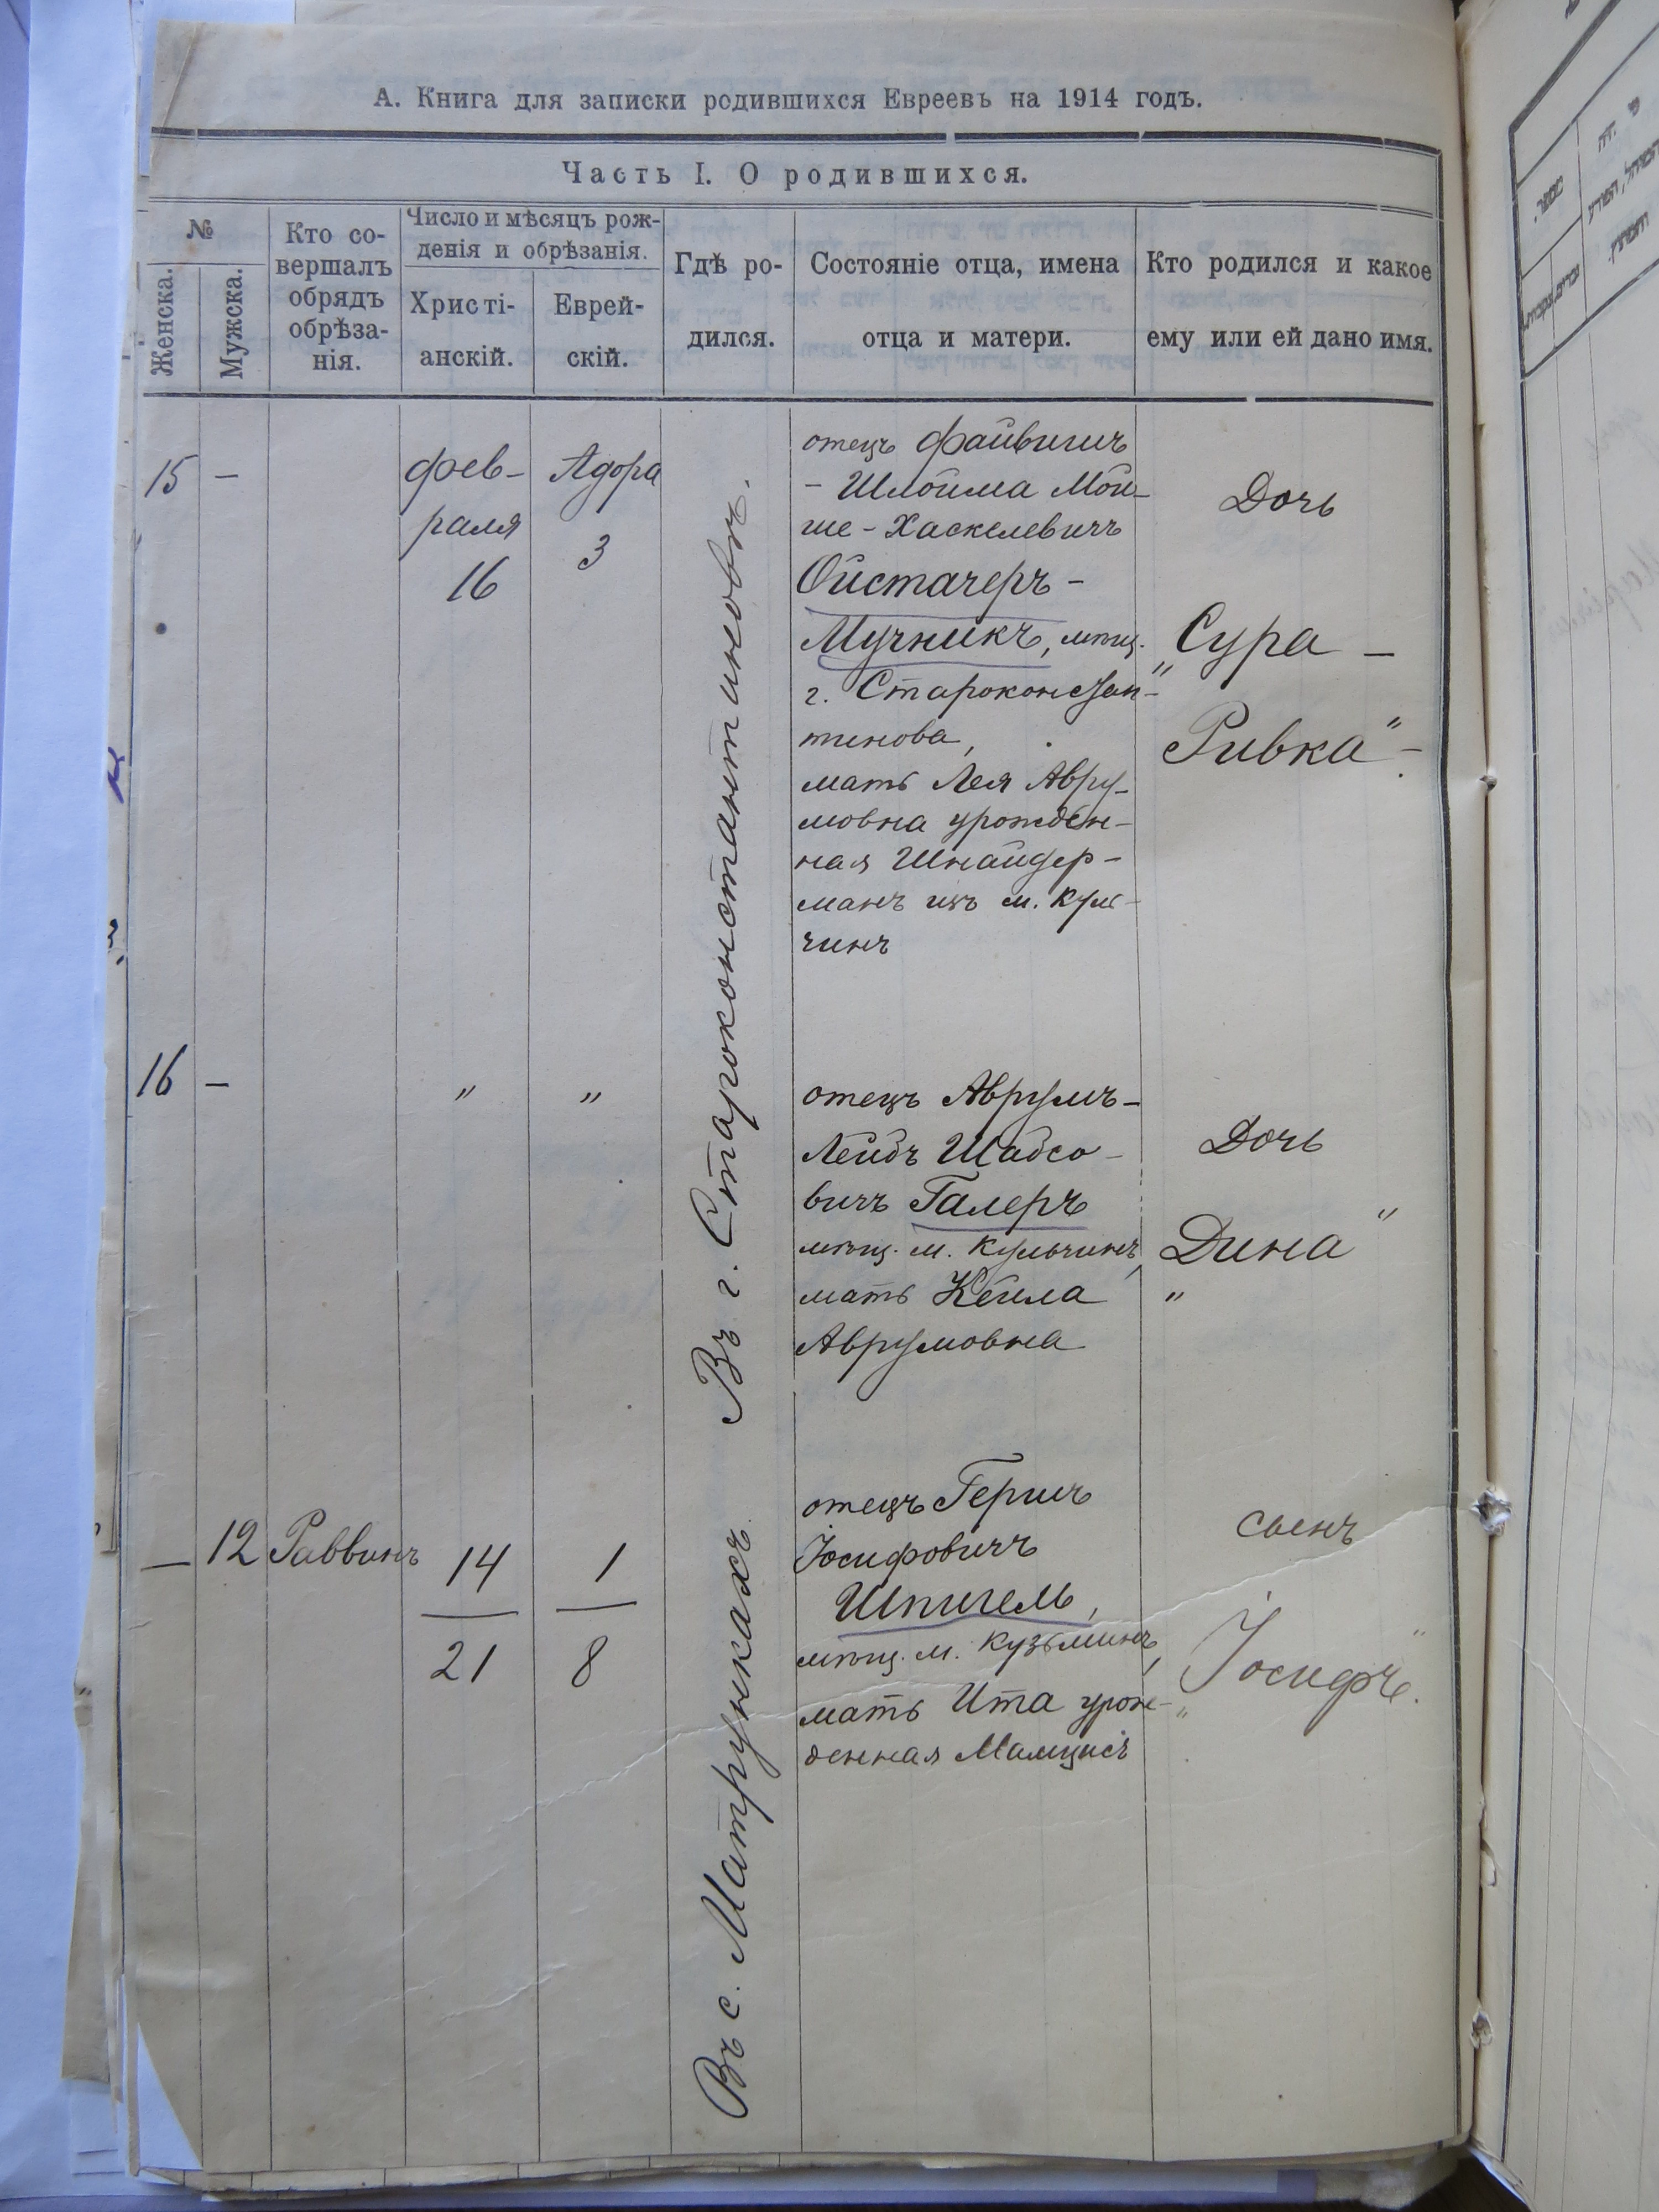 А. Книга для записки родившихся Евреевъ на 1914 годъ.
Часть I. О родившихся.
№
Женска.
Мужска.
Кто со-
вершалъ
обрядъ
обрѣза-
нія.
Число и мѣсяцъ рож-
денія и обрѣзанія.
Христі-
анскій.
Еврей-
скій.
Гдѣ ро-
дился.
Состояніе отца, имена
отца и матери.
Кто родился и какое
ему или ей дано имя.
15
—
фев-
раля
16
Адора
3
Въ г. Староконстантиновѣ.
отецъ Файвишъ
- Шлойма Мой-
ше - Хаскелевичъ
Ойстачеръ -
Мучникъ, мѣщ.
г. Староконстан-
тинова,
мать Лея Авру-
мовна урожден-
ная Шнайдер-
манъ изъ м. Куль-
чинъ
Дочь
„Сура —
Ривка" -
16
—
"
"
отецъ Аврумъ-
Лейбъ Шабсо-
вичъ Галеръ
мѣщ. м. Кульчинъ,
мать Кейла
Аврумовна
Дочь
„Дина"
—
12
Раввинъ
14
21
1
8
Въ с. Матрункахъ
отецъ Гершъ
Іосифовичъ
Шпигель,
мѣщ. м. Кузьминъ,
мать Ита урож-
денная Мамцисъ
сынъ
„Іосифъ".